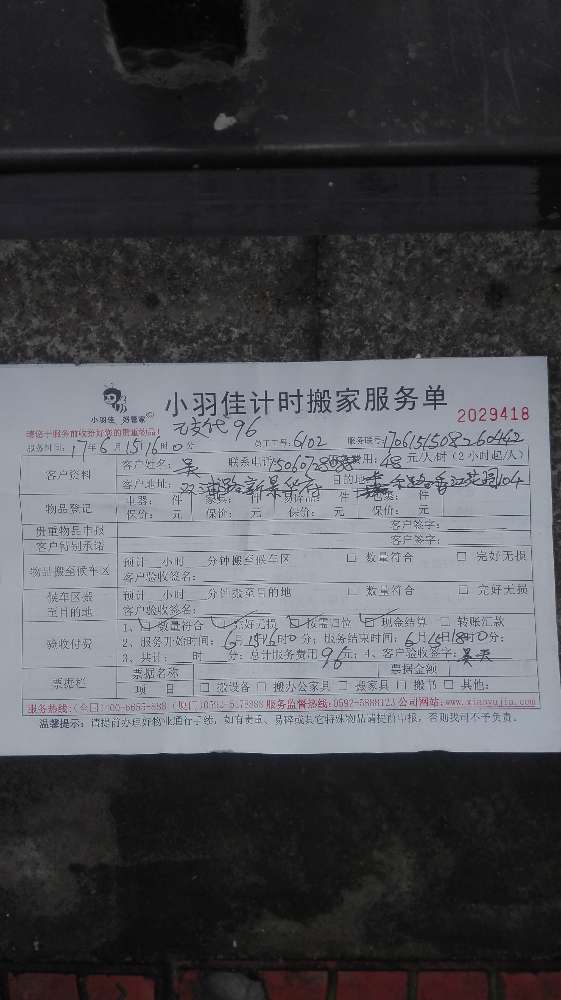 小羽佳 好管家
小羽佳计时搬家服务单
2029418
请您于服务前收好您的贵重物品!
96
服务时间: 17年 6月 15日 16时 0分 员工工号: 6102 服务账号:
客户资料 客户姓名: 吴 联系电话: 服务费用: 48 元/人时 (2小时起/人)
客户地址: 目的地:
物品登记 电器: 件 家具: 件 易碎品: 件 其它: 件
保价: 元 保价: 元 保价: 元 保价: 元
贵重物品申报 客户签字:
客户特别承诺 客户签字:
物品搬至候车区 预计 小时 分钟搬至候车区 □ 数量符合 □ 完好无损
客户验收签名:
候车区搬至目的地 预计 小时 分钟搬至目的地 □ 数量符合 □ 完好无损
客户验收签名:
验收付费 1、☑数量符合 ☑完好无损 ☑按需归位 ☑现金结算 □ 转账汇款
2、服务开始时间: 6月15日16时0分; 服务结束时间: 6月15日18时0分;
3、共计: 时 分; 总计服务费用 96元; 4、客户验收签字:
票据栏 票据名称 票据金额
项 目 □ 搬设备 □ 搬办公家具 □ 搬家具 □ 搬书 □ 其他:
服务热线: (全国)400-6655-888 (厦门)0592-5178888 服务监督热线:0592-5888123 公司网站:www.xiaoyujia.com
温馨提示: 请提前办理好物业通行手续, 如有贵重、易碎或其它特殊物品请提前申报, 否则我司不予负责。